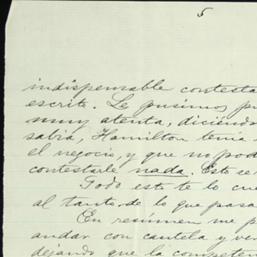 5
indispensable contesta
escrito. Le pusimos
muy atenta, diciéndo
sabia, Hamilton tenia
el negocio, y que no pod
contestarle nada. Este
Todo esto te lo cue
al tanto de lo que pasa
En resúmen me p
andar con cautela y ver
dejando que la competen